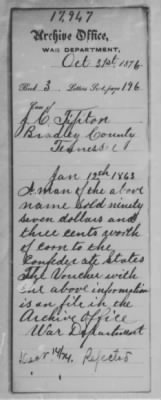 17,947
Archive Office,
WAR DEPARTMENT,
Oct 31st, 1876
Book 3 Letters Sent, page 196
J. C. Tipton
Bradley County
Tennessee
Jan 12th 1863
A man of the above
name sold ninety
seven dollars and
three cents worth
of corn to the
Confederate States
The Voucher with
above information
is on file in the
Archive Office
War Department
Rejected